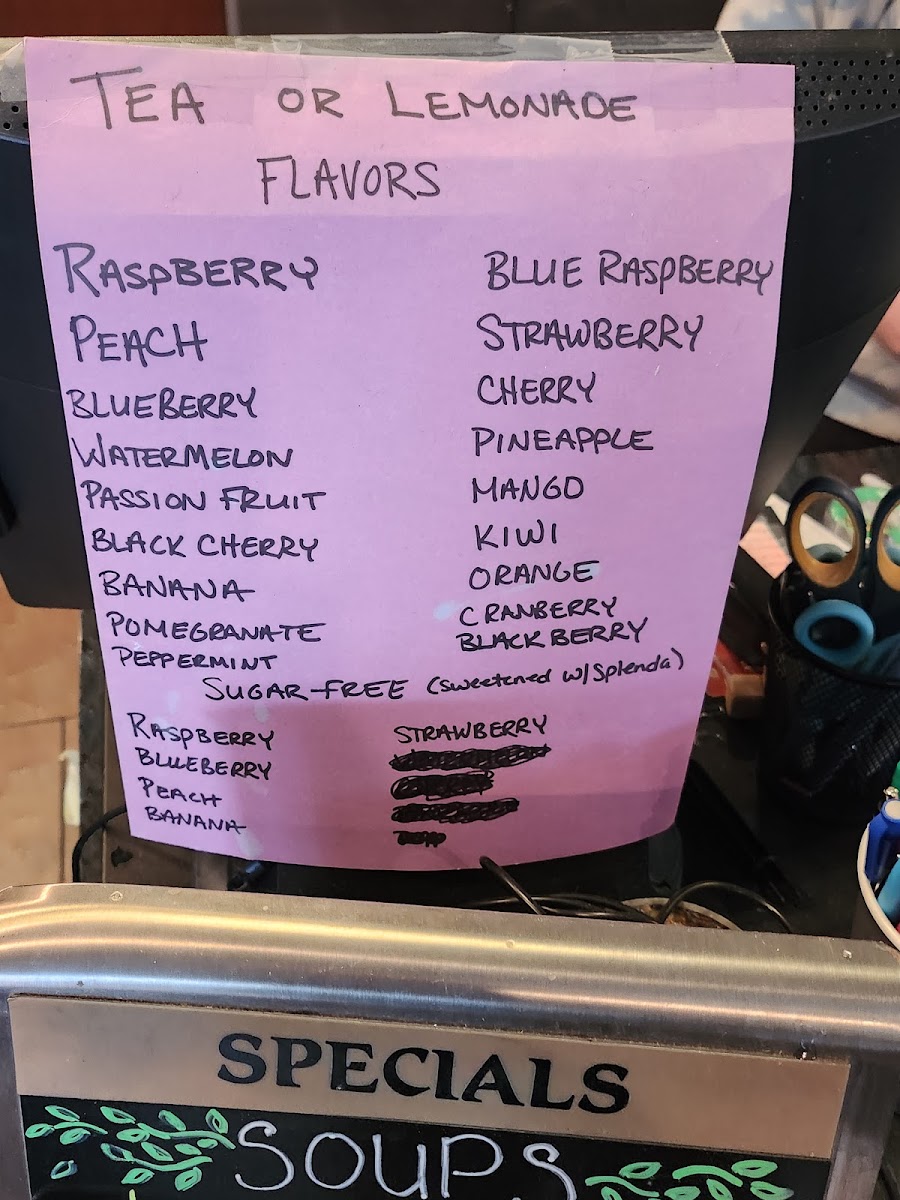 TEA OR LEMONADE
FLAVORS
RASPBERRY
PEACH
BLUEBERRY
WATERMELON
PASSION FRUIT
BLACK CHERRY
BANANA
POMEGRANATE
PEPPERMINT
BLUE RASPBERRY
STRAWBERRY
CHERRY
PINEAPPLE
MANGO
KIWI
ORANGE
CRANBERRY
BLACKBERRY
SUGAR-FREE (sweetened w/Splenda)
RASPBERRY
BLUEBERRY
PEACH
BANANA
STRAWBERRY
SPECIALS
SOUPS